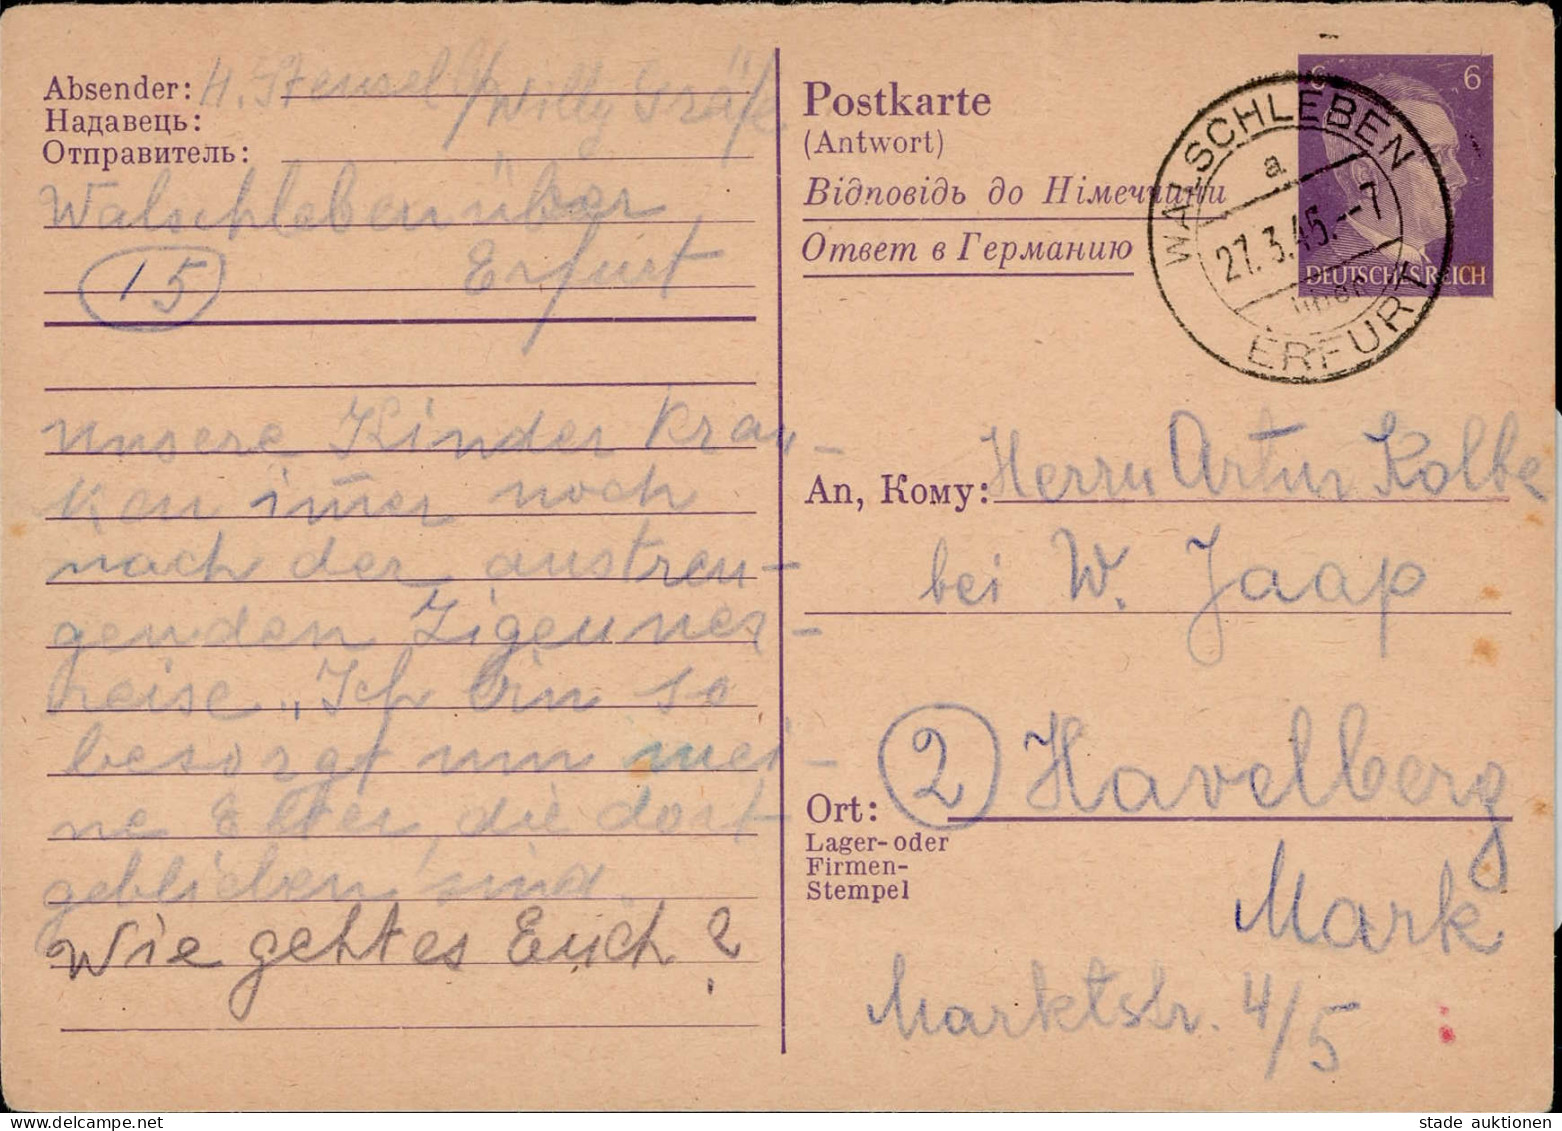 Absender: H. Stensel b/ Willy Gräfe
Надавець:
Отправитель:
Walschleben über
(15) Erfurt
unsere Kinder kran-
ken im̄er noch
nach der anstren-
genden Zigeuner-
reise. Ich bin so
besorgt um mei-
ne Elter, die dort
geblieben sind.
Wie geht es Euch?
Postkarte
(Antwort)
Відповідь до Німеччини
Ответ в Германию
6 6
DEUTSCHES REICH
WALSCHLEBEN
a
27.3.45.--7
über
ERFURT
An, Кому: Herrn Artur Kolbe
bei W. Jaap
Ort: (2) Havelberg
Lager- oder
Firmen-
Stempel
Mark
Marktstr. 4/5
stade auktionen